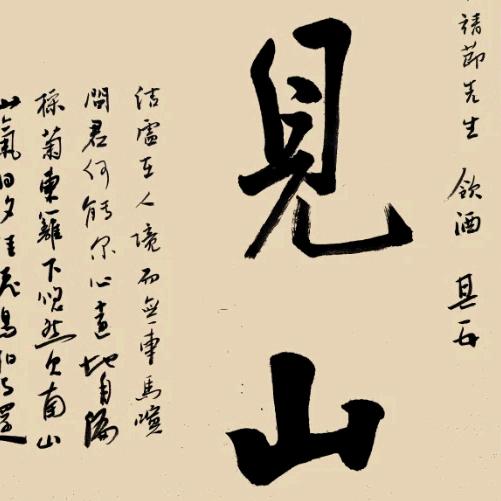 靖節先生 飲酒 其五
見山
結廬在人境而無車馬喧
問君何能尔心遠地自偏
採菊東籬下悠然見南山
山氣日夕佳飛鳥相與還